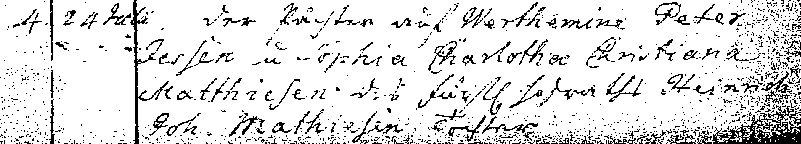 4. 24 Julii. Der Pächter auf Werthemine Peter
Jessen u. Sophia Charlotha Christiana
Matthiesen. des fürstl. Hofraths Heinrich
Joh. Mathiesen Tochter